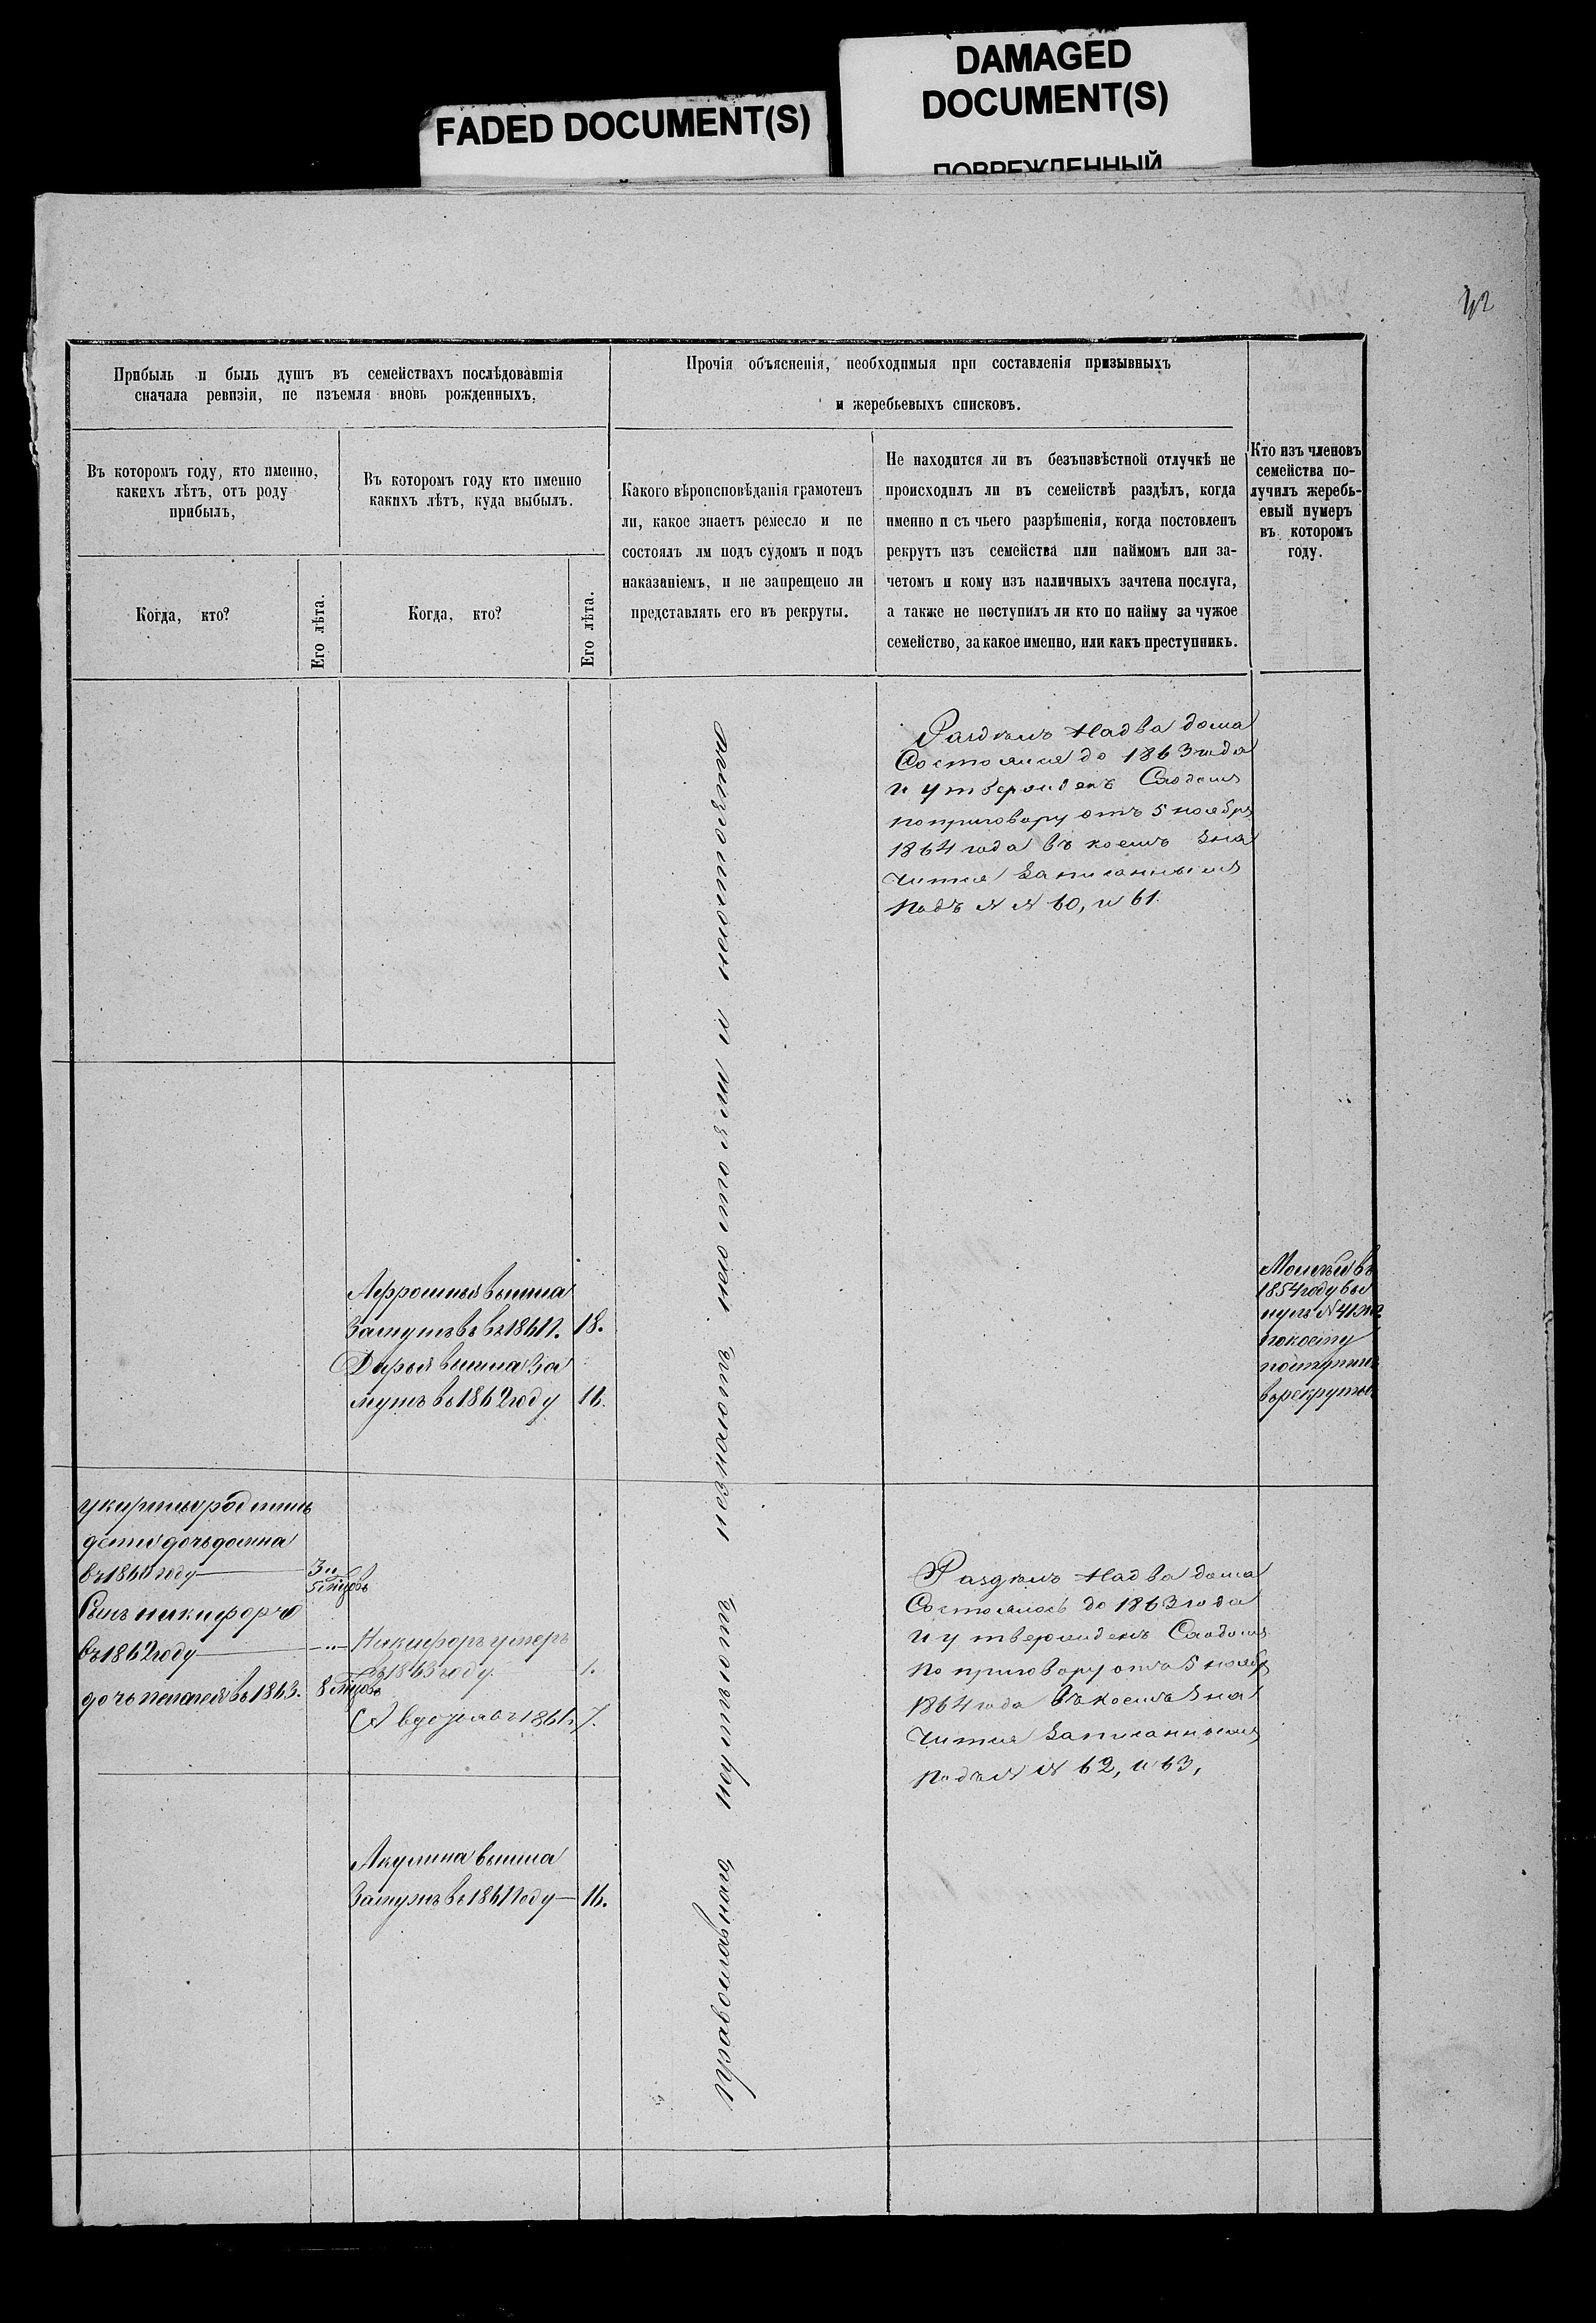 FADED DOCUMENT(S)
DAMAGED
DOCUMENT(S)
ПОВРЕЖДЕННЫЙ
42
Прибыль и быль душъ въ семействахъ послѣдовавшія
сначала ревизіи, не изъемля вновь рожденныхъ.
Въ которомъ году, кто именно,
какихъ лѣтъ, отъ роду
прибылъ,
Въ которомъ году кто именно
какихъ лѣтъ, куда выбылъ.
Когда, кто?
Его лѣта.
Когда, кто?
Его лѣта.
Прочія объясненія, необходимыя при составленія призывныхъ
и жеребьевыхъ списковъ.
Какого вѣроисповѣданія грамотенъ
ли, какое знаетъ ремесло и не
состоялъ лм подъ судомъ и подъ
наказаніемъ, и не запрещено ли
представлять его въ рекруты.
Не находится ли въ безъизвѣстной отлучкѣ не
происходилъ ли въ семействѣ раздѣлъ, когда
именно и съ чьего разрѣшенія, когда постовленъ
рекрутъ изъ семейства или наймомъ или за-
четомъ и кому изъ наличныхъ зачтена послуга,
а также не поступилъ ли кто по найму за чужое
семейство, за какое именно, или какъ преступникъ.
Кто изъ членовъ
семейства по-
лучилъ жеребь-
евый нумеръ
въ которомъ
году.
Раздѣлъ На два дома
до 1863 года
и утвержденъ Сходомъ
по приговору отъ 5 ноября
1864 года въ коемъ Зна
чится Записаннымъ
подъ N N 60, и 61.
православнаго неумѣютъ незнаютъ несостояли и несостоятъ
вышла
Замужъ въ 1861 г. 18.
Дарья вышла За
мужъ въ 1862 году 16.
въ
1854 году вы
нулъ N 41
по коему
поступилъ
въ рекруты
родились
дети дочь домна
въ 1860 году 3 и
5 мцовъ
Сынъ никифоръ
въ 1862 году
дочь пелагея въ 1863. 8 мцовъ
Никифоръ умеръ
въ 1863 году 1.
7.
Раздѣлъ На два дома
Состоялось до 1863 года
и утвержденъ Сходомъ
по приговору отъ 5 ноябр
1864 года въ коемъ Зна
чится Записаннымъ
подъ N N 62, и 63,
Акулина вышла
Замужъ въ 1861 году 16.